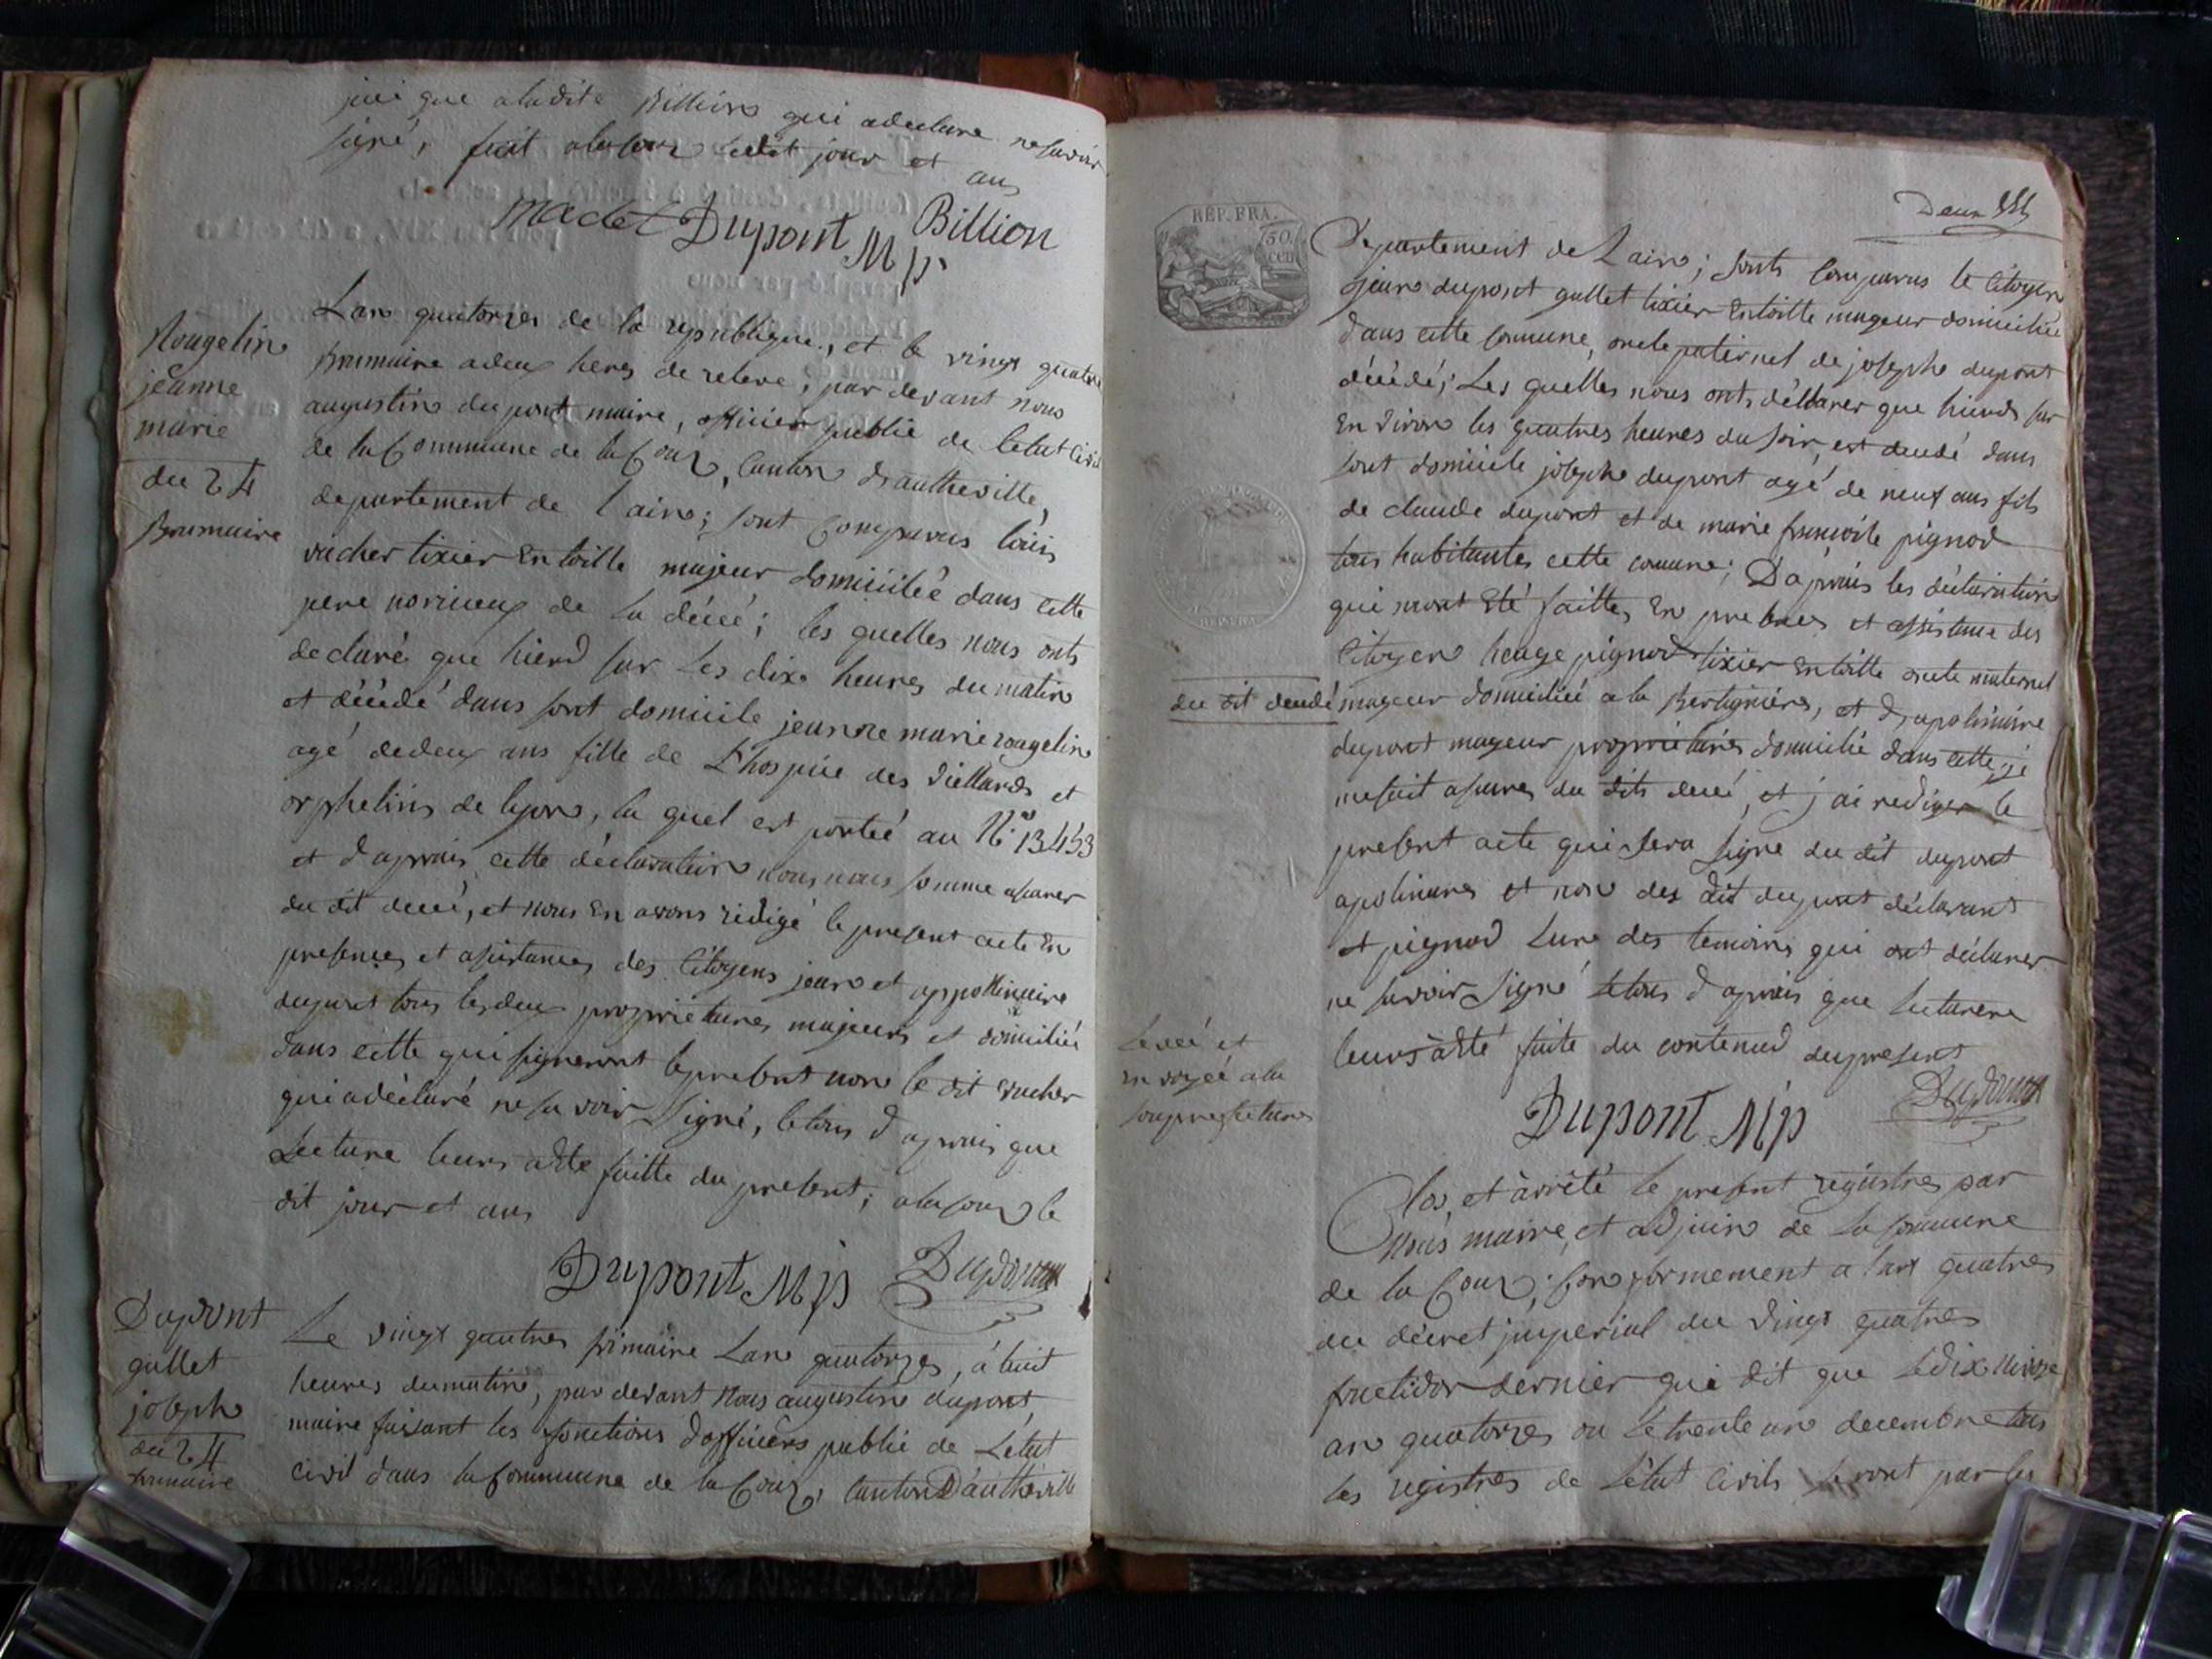 jici que aladite Billion qui a declare ne savoir
signé, fait alacoux ledit jour et an
Madet Dupont Mp Billion
Rougelin
jeanne
marie
du 24
Brumaire
Lan quatorzes de la republique, et le vingt quatre
Brumaire a deux heres de releve, par devant nous
augustin dupont maire, officier public de letat Civil
de la Commune de la Coux, Canton d'autheville,
departement de lain; sont Comparus louis
vucher tixier En toille majeur domicilié dans cette
pere noricieux de la décéé; les quelles nous onts
declaré que hierd sur les dixe heures du matin
et décédé dans sont domicile jeanne marie rougelin
agé dedeux ans fille de L'hospice des viellards et
orphelins de lyon, la quel est portéé au N.° 13453
et daprais cette déclaration nous nous somme asurer
du dit décéé, et nous En avons rédigé le present acte En
presences et asistances des Citoyens jean et appollinaire
dupont tous les deux proprietaires majeurs et domicilié
dans cette qui signeront le present non le dit vucher
qui a déclaré ne savoir Signé, letous d aprais que
Lecture leurs a été faitte du present; alacoux le
dit jour et ans
Dupont Mp Dupont
Dupont
gallet
joseph
du 24
frimaire
Le vingt quatres frimaire Lan quatorzes, á huit
heures dumatin, par devant Nous augustin dupont
maire faisant les fonctions d'officiers public de Létat
civil dans la Commune de la Coux, Canton D'autheville
REP. FRA.
50.
cen
Deux
Departement de Lain; sonts Comparus le Citoyen
jean dupont gallet tixier En toille mageur domicilié
dans cette Commune, oncle paternel de josephe dupont
décédé; Les quelles nous onts déclarer que hierds sur
En viron les quatres heures du soir, est décédé dans
sont domicile josephe dupont agé de neuf ans fils
de claude dupont et de marie françoise pignod
tous habitantes cette comune; D'aprais les déclaration
qui mont Eté faittes En presences et assistance des
Citoyen heuge pignod tixier En toille oncle maternel
du dit décédé mageur domicilié a la Bertignieres, et d, apolinaire
dupont mageur proprietaires domicilié dans cette, je
me suit asurer du dits décéé, et j ai rediger le
present acte qui sera signe du dit dupont
apolinaires et non des dit dupont déclarant
et pignod lun des temoins qui ont déclarer
ne savoir Signé letous d aprais que lecturere
leurs a été faite du contenud dupresent
Levéé et
en voyéé a la
souprefectures
Dupont Mp Dupont
Clos, et àrrêté le present régistres par
Nous maire, et adjoin de la Commune
de la Coux; Conformement a lart quatres
du décret jmperial du vingt quatres
fructidor dernier qui dit que le dix Nivose
an quatorzes ou le trente un decembre tous
les registres de Létat Civils seront par les